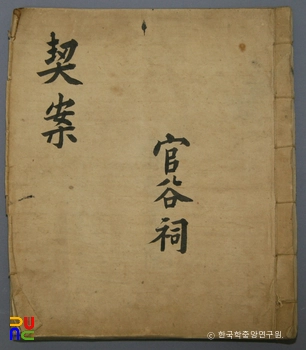 契案
官谷祠
© 한국학중앙연구원